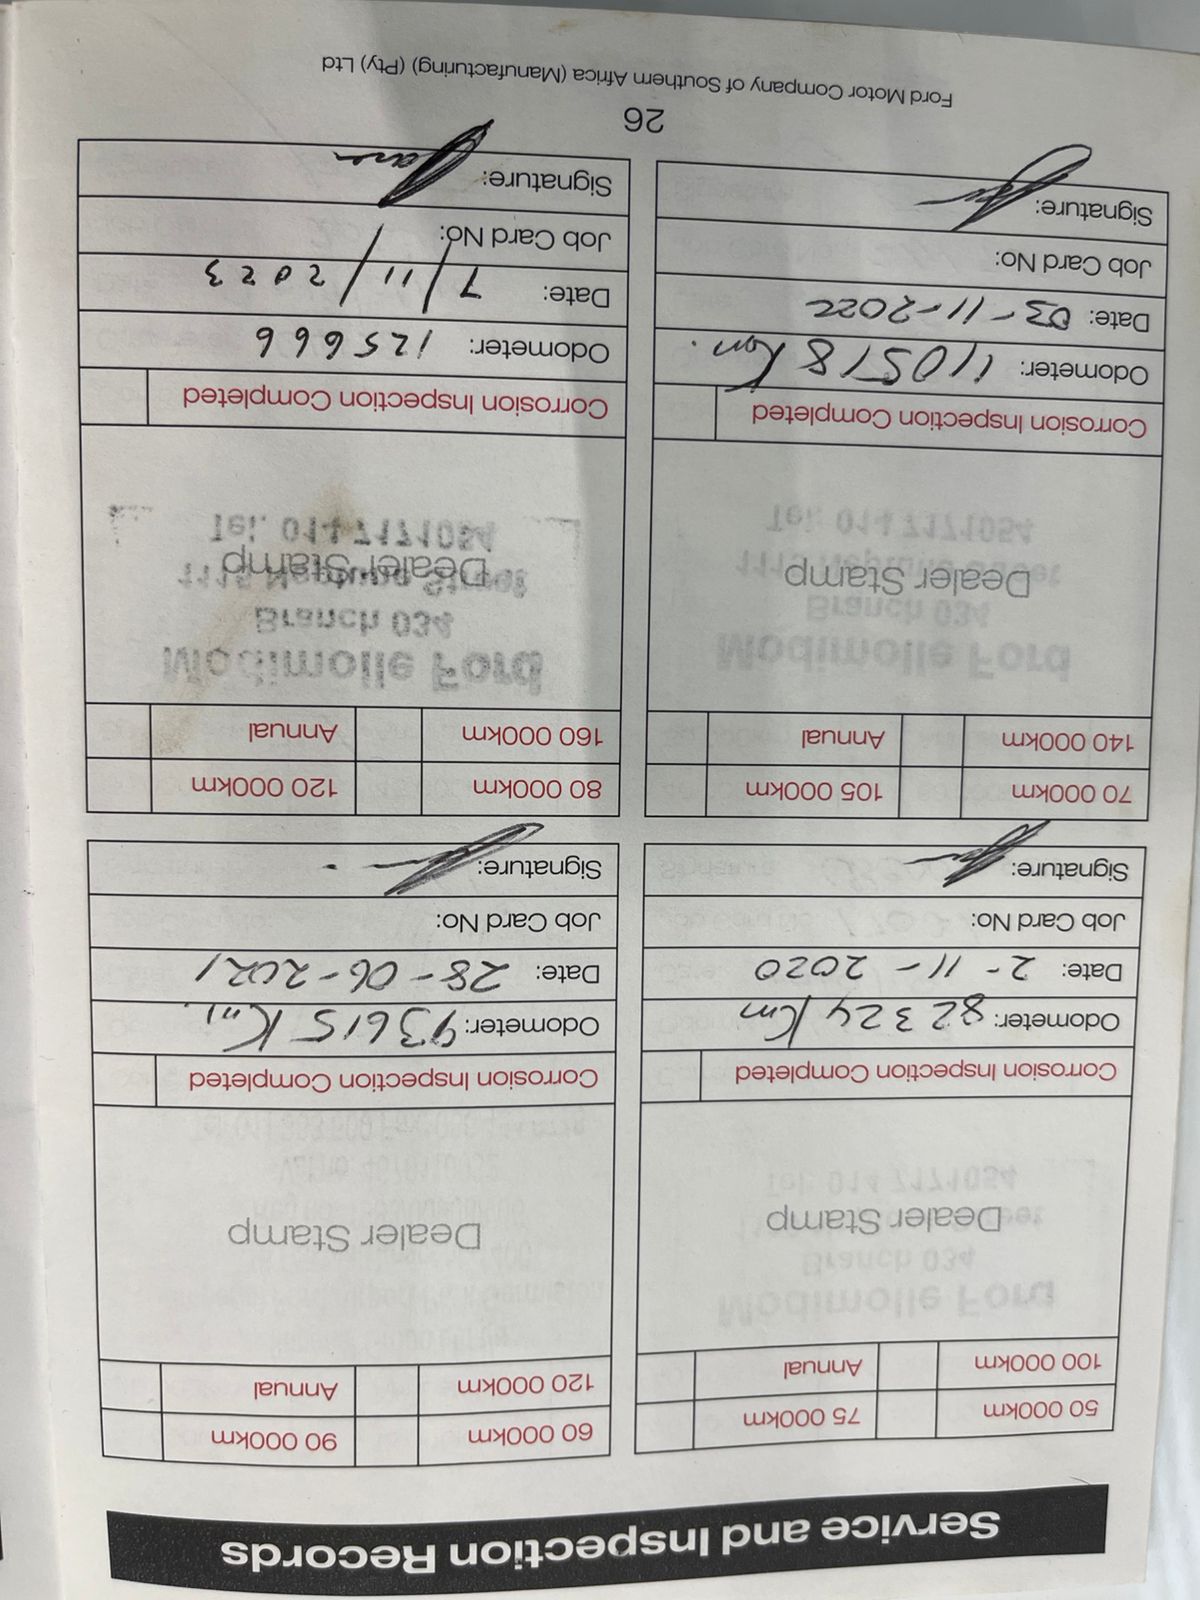 Service and Inspection Records
50 000km 75 000km
100 000km Annual
Modimolle Ford
Branch 034
Dealer Stamp
Tel: 014 7171054
Corrosion Inspection Completed
Odometer: 82324 Km
Date: 2-11-2020
Job Card No:
Signature:
60 000km 90 000km
120 000km Annual
Dealer Stamp
Corrosion Inspection Completed
Odometer: 93615 Km.
Date: 28-06-2021
Job Card No:
Signature:
70 000km 105 000km
140 000km Annual
Modimolle Ford
Branch 034
Dealer Stamp
1115 Neptune Street
Tel: 014 7171054
Corrosion Inspection Completed
Odometer: 110518 Km.
Date: 03-11-2022
Job Card No:
Signature:
80 000km 120 000km
160 000km Annual
Modimolle Ford
Branch 034
1115 Neptune Street
Dealer Stamp
Tel: 014 7171054
Corrosion Inspection Completed
Odometer: 125666
Date: 7/11/2023
Job Card No:
Signature:
26
Ford Motor Company of Southern Africa (Manufacturing) (Pty) Ltd